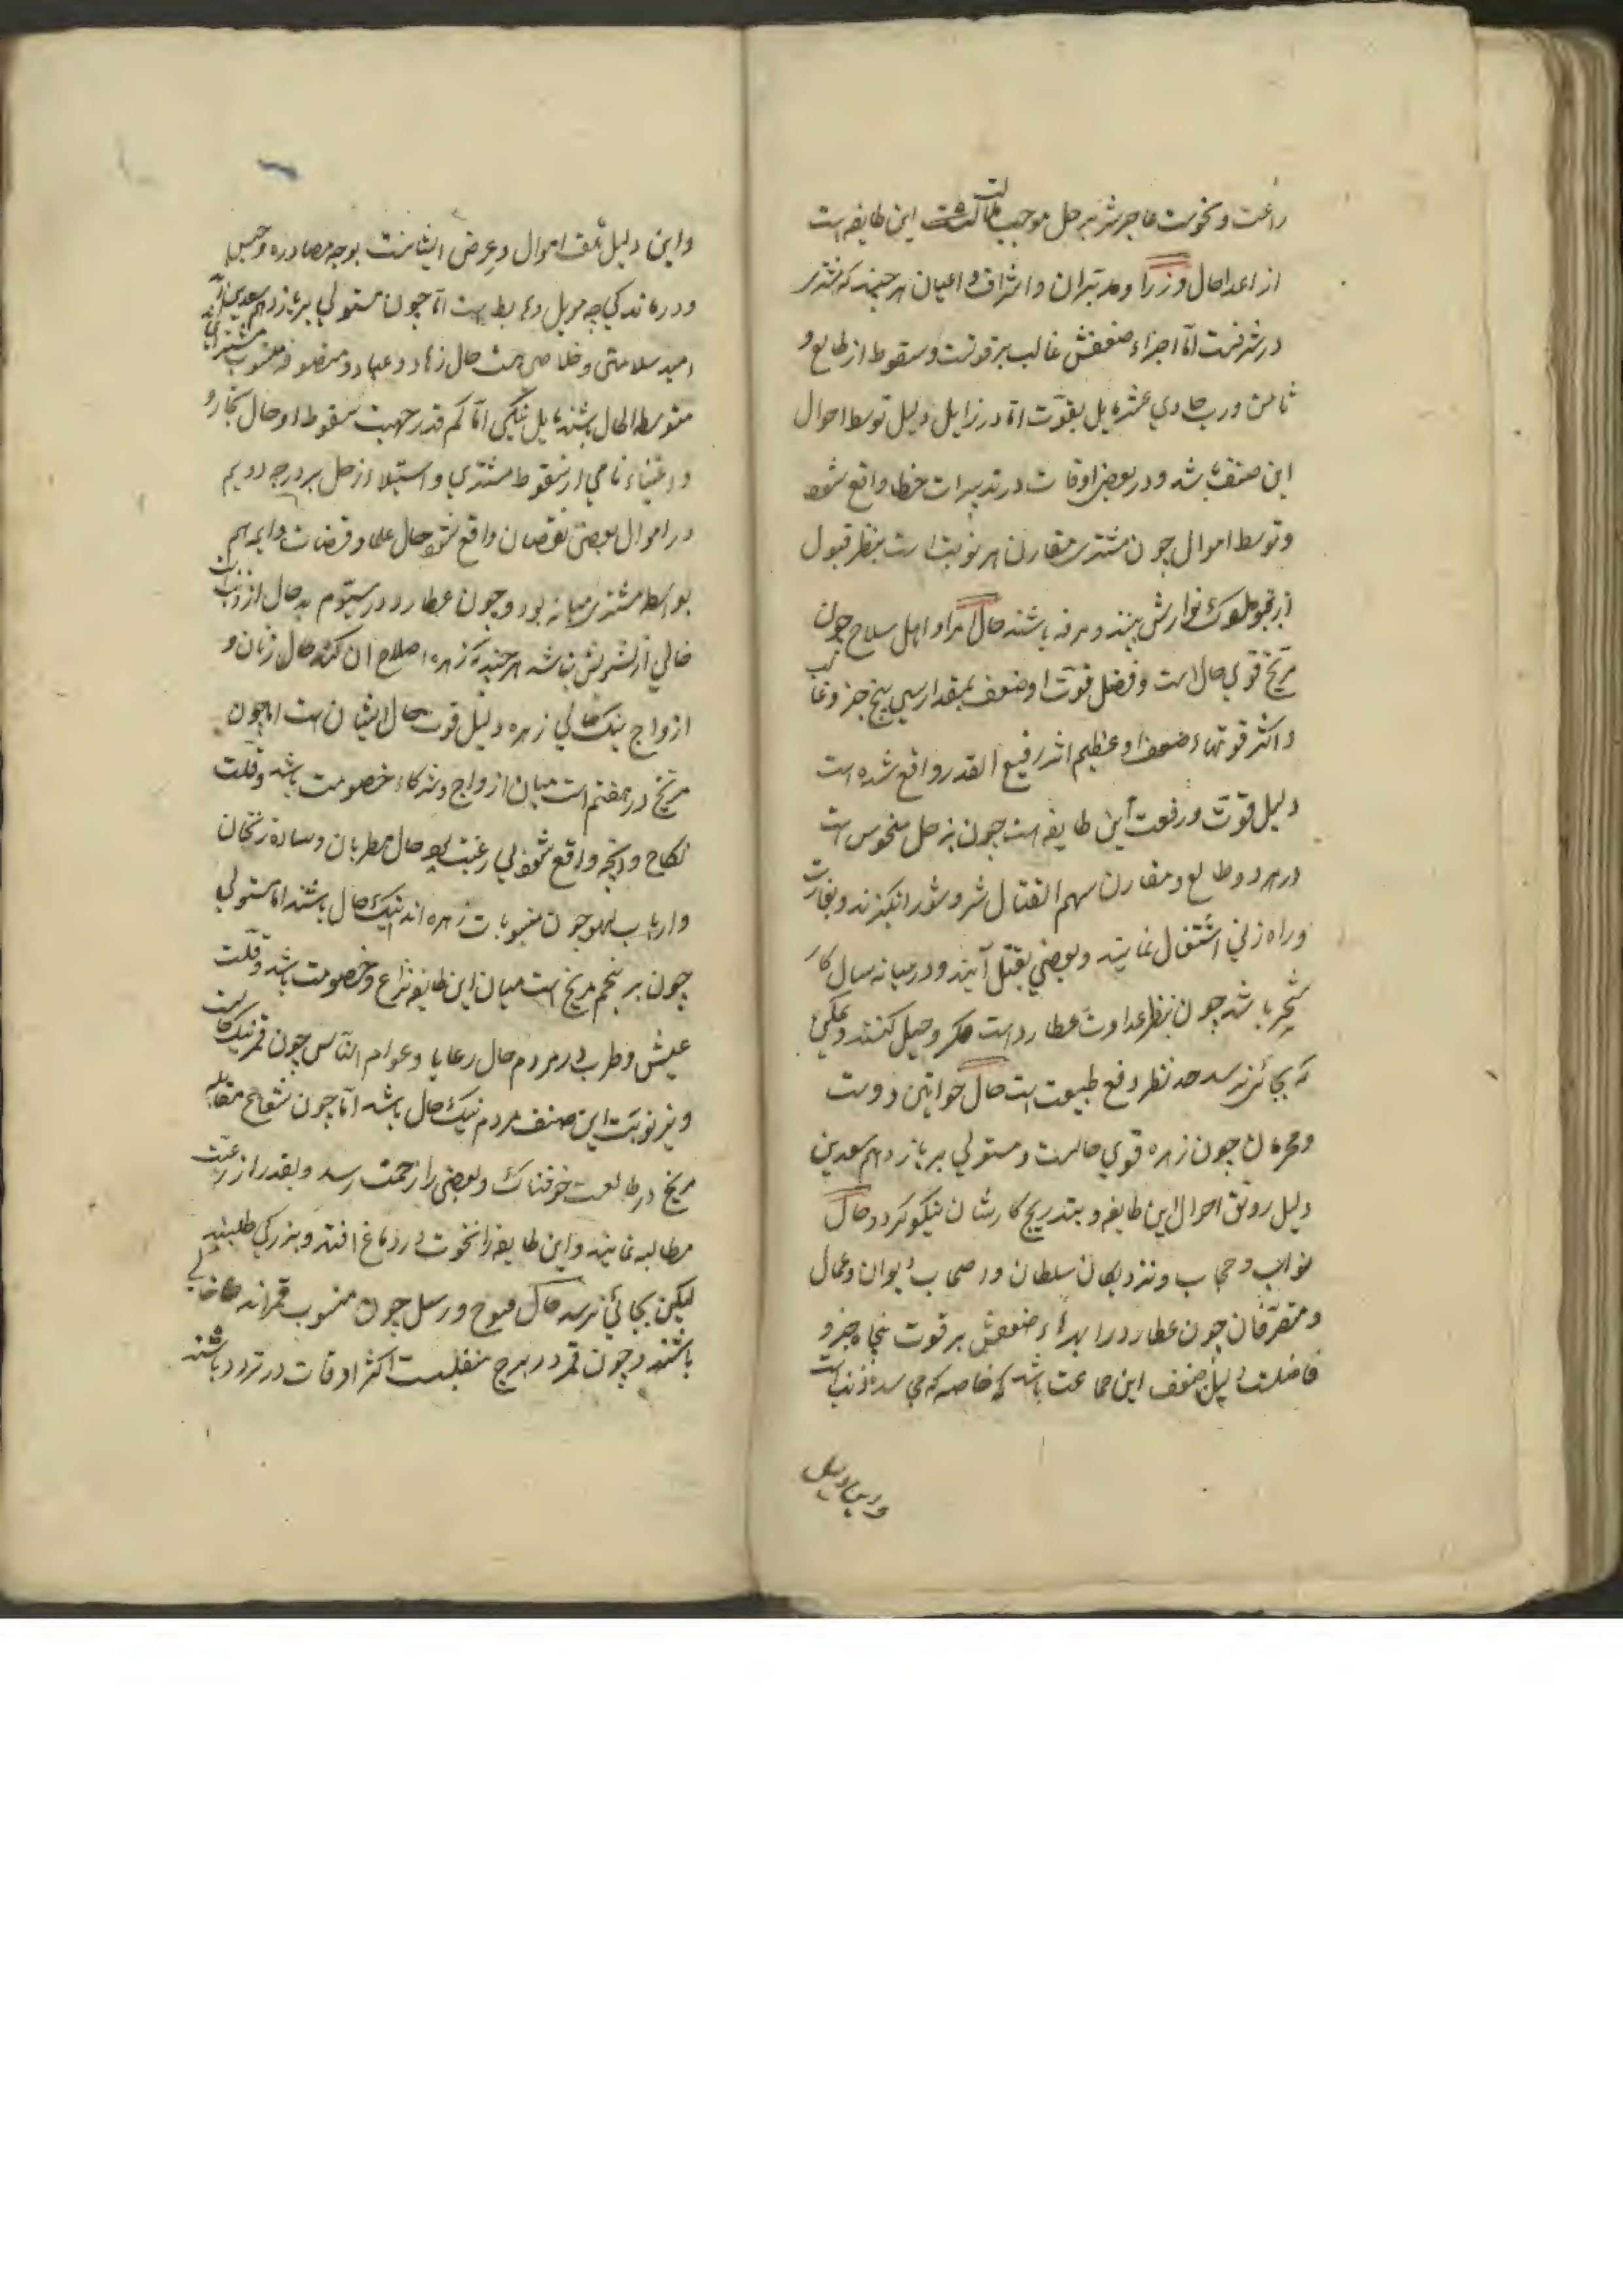 رغبت و نحوست عاجر شد بر حل موجب این طایفه است
از اعدا حال وزرا و مدبران و اشراف و اعیان هر چند که مشتری
در شرفست اما اجزاء ضعفش غالب بر قوتست و سقوط از طالع و
ثامن و رب حادی عشر مایل بقوت اما در زایل دلیل توسط احوال
این صنف باشد و در بعضی اوقات در تدبیرات خطا واقع شود
و توسط اموال چون مشتری مقارن هر نوبت است بنظر قبول
از قبل ملوک نوازش بینند و مرفه باشند حال امرا و اهل سلاح چون
مریخ قوی حال است و فضل قوت او ضعف بمقدار سی پنج جزء و غالب
و اکثر قوتهاء ضعفا و عظیم اثر رفیع القدر واقع شده است
دلیل قوت و رفعت این طایفه است چون بزحل منحوس است
در هر دو طالع و مقارن سهم القتال شر و شور انگیزند و بغارت
و راه زنی اشتغال نمایند و بعضی بقتل آیند و در میانه سال کار
باشد چون بنظر عداوت عطارد است مکر و حیل کنند
که بجائی نرسد نظر دفع طبیعت است حال خواتین دوست
و محرمان چون زهره قوی حالست و مستولی بر یازدهم سعدین
دلیل رونق احوال این طایفه و بتدریج کارشان نیکو گردد حال
نواب و حجاب و نزدیکان سلطان و اصحاب دیوان و عمال
و متصرفان چون عطارد را اجزاء ضعفش بر قوت پنجاه جزو
فاضلست دلیل ضعف این جماعت باشد که خاصه که می رسد ذنب است
و این دلیل
و این دلیل تلف اموال و عرض ایشانست بوجه مصادره و حبس
و درماندگی چه مزیل و هابط است اما چون مستولی بر یازدهم سعدین اند
امید سلامتی و خلاصی هست حال زهاد و عباد و متصوفه منسوب مشتری اند
متوسط الحال باشند مایل بنیکی اما کم قدر جهت سقوط او حال تجار و
و اغنیاء نامی از سقوط مشتری و استیلاء زحل بر درجه دویم
در اموال بعضی نقصان واقع شود حال علما و قضات و ایمه هم
بواسطه مشتری میانه بود و چون عطارد در سیوم بد حال از ذنب است
خالی از تشویش نباشد هر چند که زهره اصلاح آن کند حال زنان و
ازواج نیک حالی زهره دلیل قوت حال ایشان است اما چون
مریخ در هفتم است میان ازواج و شرکاء خصومت باشد و قلت
نکاح و آنچه واقع شود بی رغبت بود حال مطربان و ساده زنخان
و ارباب لهو چون منسوبات زهره اند نیک حال باشند اما مستولی
چون بر پنجم مریخ است میان این طایفه نزاع و خصومت باشد و قلت
عیش و طرب در مردم حال رعایا و عوام الناس چون قمر نیک حالست
و نیر نوبت این صنف مردم نیک حال باشد اما چون شعاع مقابله
مریخ در طالعست خوفناک و بعضی را زحمت رسد و بقدر از رعیت
مطالبه نمایند و این طایفه را نخوت در دماغ افتد و بزرگی طلبند
لیکن بجائی نرسد حال فیوج و رسل چون منسوب قمرند
باشند و چون قمر در برج منقلبست اکثر اوقات در تردد باشند